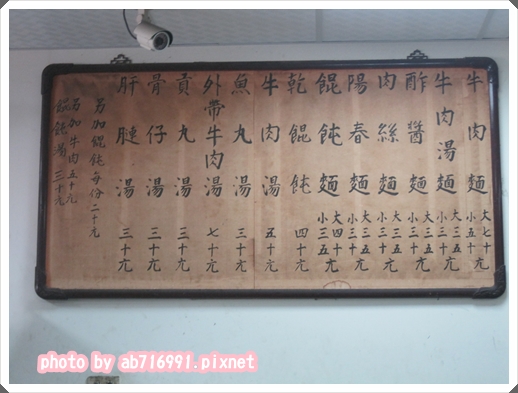 牛肉麵 大七十元 小五十
牛肉湯麵 大三五 小三十元
酢醬麵 大三五 小三十元
肉絲麵 大三五 小三十元
陽春麵 大三五 小三十元
餛飩麵 大四十 小三五元
乾餛飩 四十元
牛肉湯 五十元
魚丸湯 三十元
外帶牛肉湯 七十元
貢丸湯 三十元
骨仔湯 三十元
肝膇湯 三十元
另加餛飩每份二十元
另加牛肉五十元
餛飩湯 三十元
photo by ab716991.pixnet